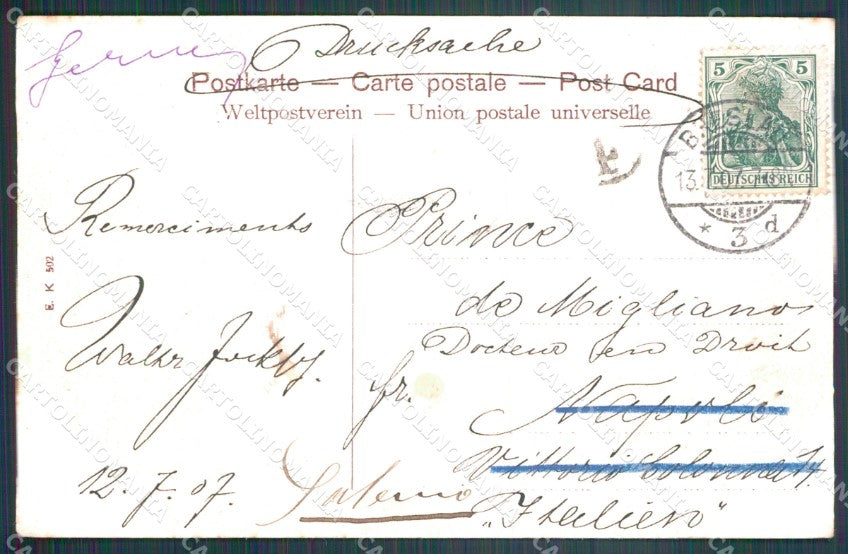 Drucksache
Postkarte — Carte postale — Post Card
Weltpostverein — Union postale universelle
5 5
DEUTSCHES REICH
BRESLAU
13.7.07.7-8
* 3 d
Remerciments
Walter
12.7.07.
E. K 502
Prince
de Migliano
Docteur en Droit
fr. Napoli
Vittoria Colonna 14
Salerno
„Italien"
CARTOLINOMANIA